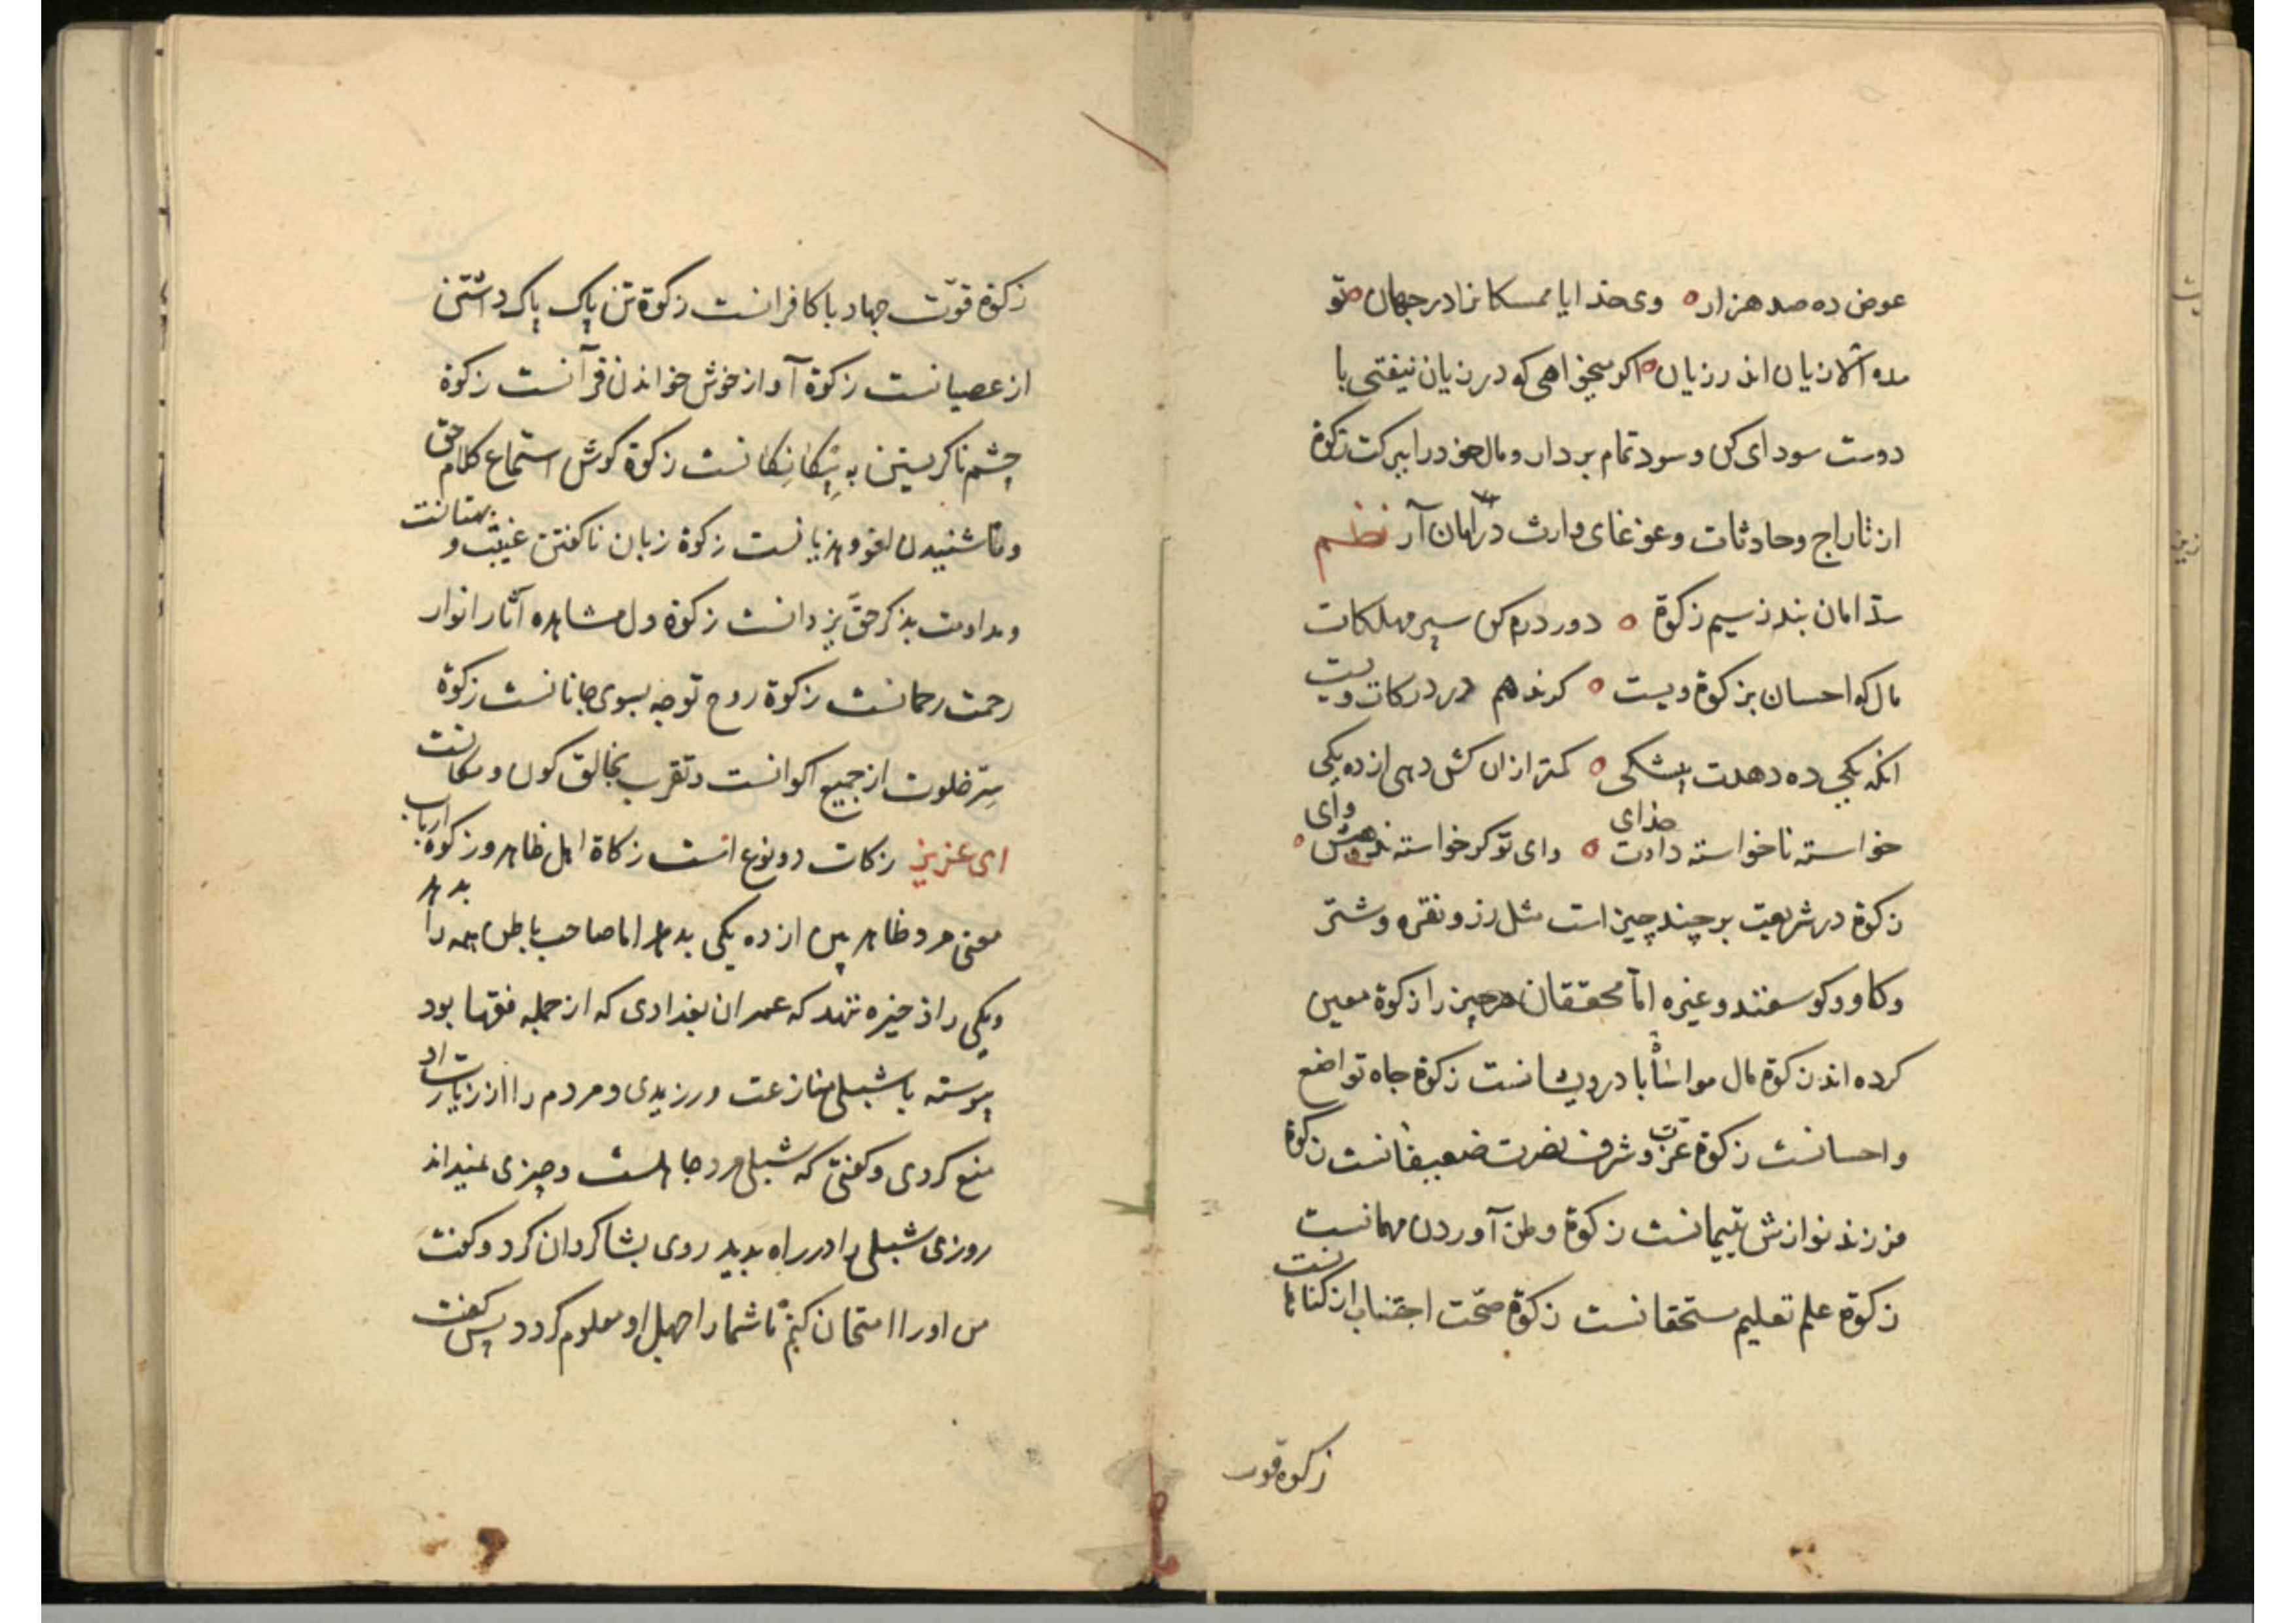 عوض ده صد هزار ۰ وی خدایا ممسکانرا در جهان ۰ تو
مده الا زیان اندر زیان ۰ اکر میخواهی که در زیان نیفتی با
دوست سودای کن و سود تمام بردار و مال خود را ببرکت زکوة
از تاراج وحادثات وغوغای وارث در امان آر نظم
ستد امان بندز سیم زکوة ۰ دور درم کن سپر مهلکات
مال که احسان بزکوة ویست ۰ کرندهم در درکات ویست
انکه یکی ده دهدت بیشکی ۰ کمتر ازان کش دهی از ده یکی
خواسته ناخواسته دادت خدای ۰ وای تو کر خواسته ندهیش وای ۰
زکوة در شریعت بر چند چیز است مثل زر و نقره وشتر
وکاو وکوسفند وغیره اما محققان هر چیز را زکوة معین
کرده اند زکوة مال مواساة با درویشانست زکوة جاه تواضع
واحسانست زکوة عزت وشرف نصرت ضعیفانست زکوة
فرزند نوازش یتیمانست زکوة وطن آوردن مهمانست
زکوة علم تعلیم مستحقانست زکوة صحت اجتناب از کناهانست
زکوة قوت
زکوة قوّت جهاد با کافرانست زکوة تن پاک پاک داشتن
از عصیانست زکوة آواز خوش خواندن قرآنست زکوة
چشم ناکریستن به بیکانکانست زکوة کوش استماع کلام حق
وناشنیدن لغو وهزیانست زکوة زبان ناکفتن غیبت و بهتانست
ومداومت بذکر حق یزدانست زکوة دل مشاهده آثار انوار
رحمت رحمانست زکوة روح توجه بسوی جانانست زکوة
سِرّ خلوت از جمیع اکوانست وتقرب بخالق کون ومکانست
ای عزیز زکات دو نوع است زکاة اهل ظاهر وزکوة ارباب
معنی مرد ظاهر بین از ده یکی بدهد اما صاحب باطن همه را بدهد
ویکی را ذخیره ننهد که عمران بغدادی که از جمله فقها بود
پیوسته با شبلی منازعت ورزیدی ومردم را از زیارت او
منع کردی وکفتی که شبلی مرد جاهلست وچیزی نمیداند
روزی شبلی را در راه بدید روی بشاکردان کرد وکفت
من اورا امتحان کنم تا شمارا جهل او معلوم کردد پس کفت